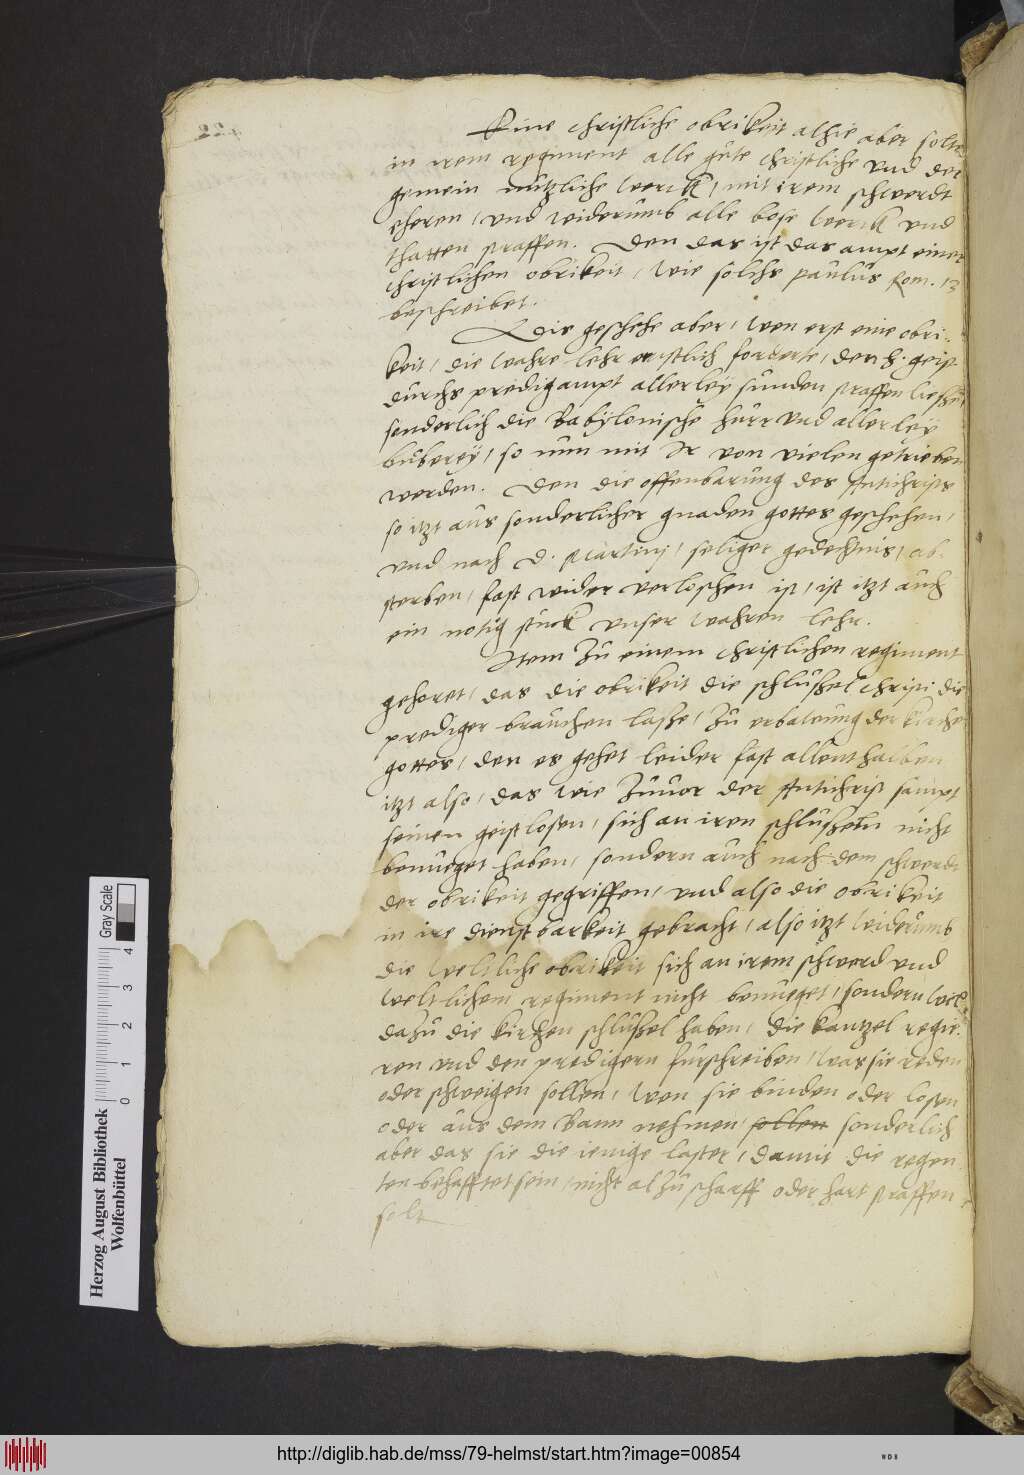 Eine christliche obrikeit alhie aber solte
in irem regiment alle gute christliche vnd der
gemein nutzliche werck / mit irem schwerdt
eheren / vnd widerumb alle bose werck vnd
thatten straffen. Den das ist das ampt einer
christlichen obrikeit / wie solchs paulus Rom. 13
beschreibet.
Dis geschehe aber / wen erst eine obri-
keit / die wahre lehr ernstlich forderte / den h. geist
durchs predigampt allerley sunden straffen liesse /
sonderlich die Babylonische hurr vnd allerley
buberey / so nun mit Ir von vielen getrieben
werden. Den die offenbarung des Antichrists
so itzt aus sonderlicher gnaden gottes geschehen /
vnd nach D. Martinj / seliger gedechtnis / ab-
sterben / fast wider verloschen ist / ist itzt auch
ein notig stuck vnser wahren lehr.
Item zu einem christlichen regiment
gehoret / das die obrikeit die schlussel christi die
prediger brauchen lasse / zu erbauung der kirchen
gottes / den es gehet leider fast allenthalben
itzt also / das wie zuuor der Antichrist sampt
seinen geistlosen / sich an iren schlusseln nicht
benueget haben / sondern auch nach dem schwerdt
der obrikeit gegriffen / vnd also die obrikeit
in ire dienstbarkeit gebracht / also itzt widerumb
die weltliche obrikeit sich an irem schwerd vnd
weltlichem regiment nicht benueget / sondern wil
dazu die kirchen schlussel haben / die kantzel regie-
ren vnd den predigern furschreiben / was sie reden
oder schweigen sollen / wen sie binden oder losen
oder aus dem Bann nehmen / sollen sonderlich
aber das sie die ienige laster / damit die regen
ten behafftet sein / nicht al zu scharff oder hart straffen
solt
Herzog August Bibliothek
Wolfenbüttel
0 1 2 3 4
Gray Scale
http://diglib.hab.de/mss/79-helmst/start.htm?image=00854